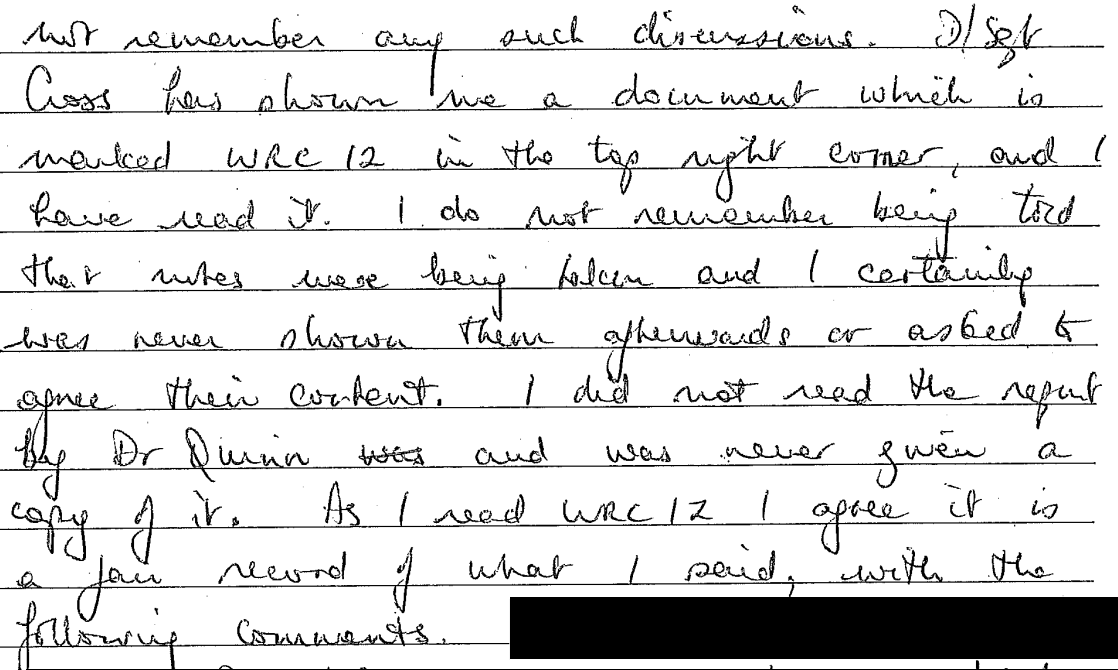 not remember any such discussions. D/Sgt
Cross has shown me a document which is
marked WRC 12 in the top right corner, and I
have read it. I do not remember being told
that notes were being taken and I certainly
was never shown them afterwards or asked to
agree their content. I did not read the report
by Dr Quinn was and was never given a
copy of it. As I read WRC 12 I agree it is
a fair record of what I said, with the
following comments.